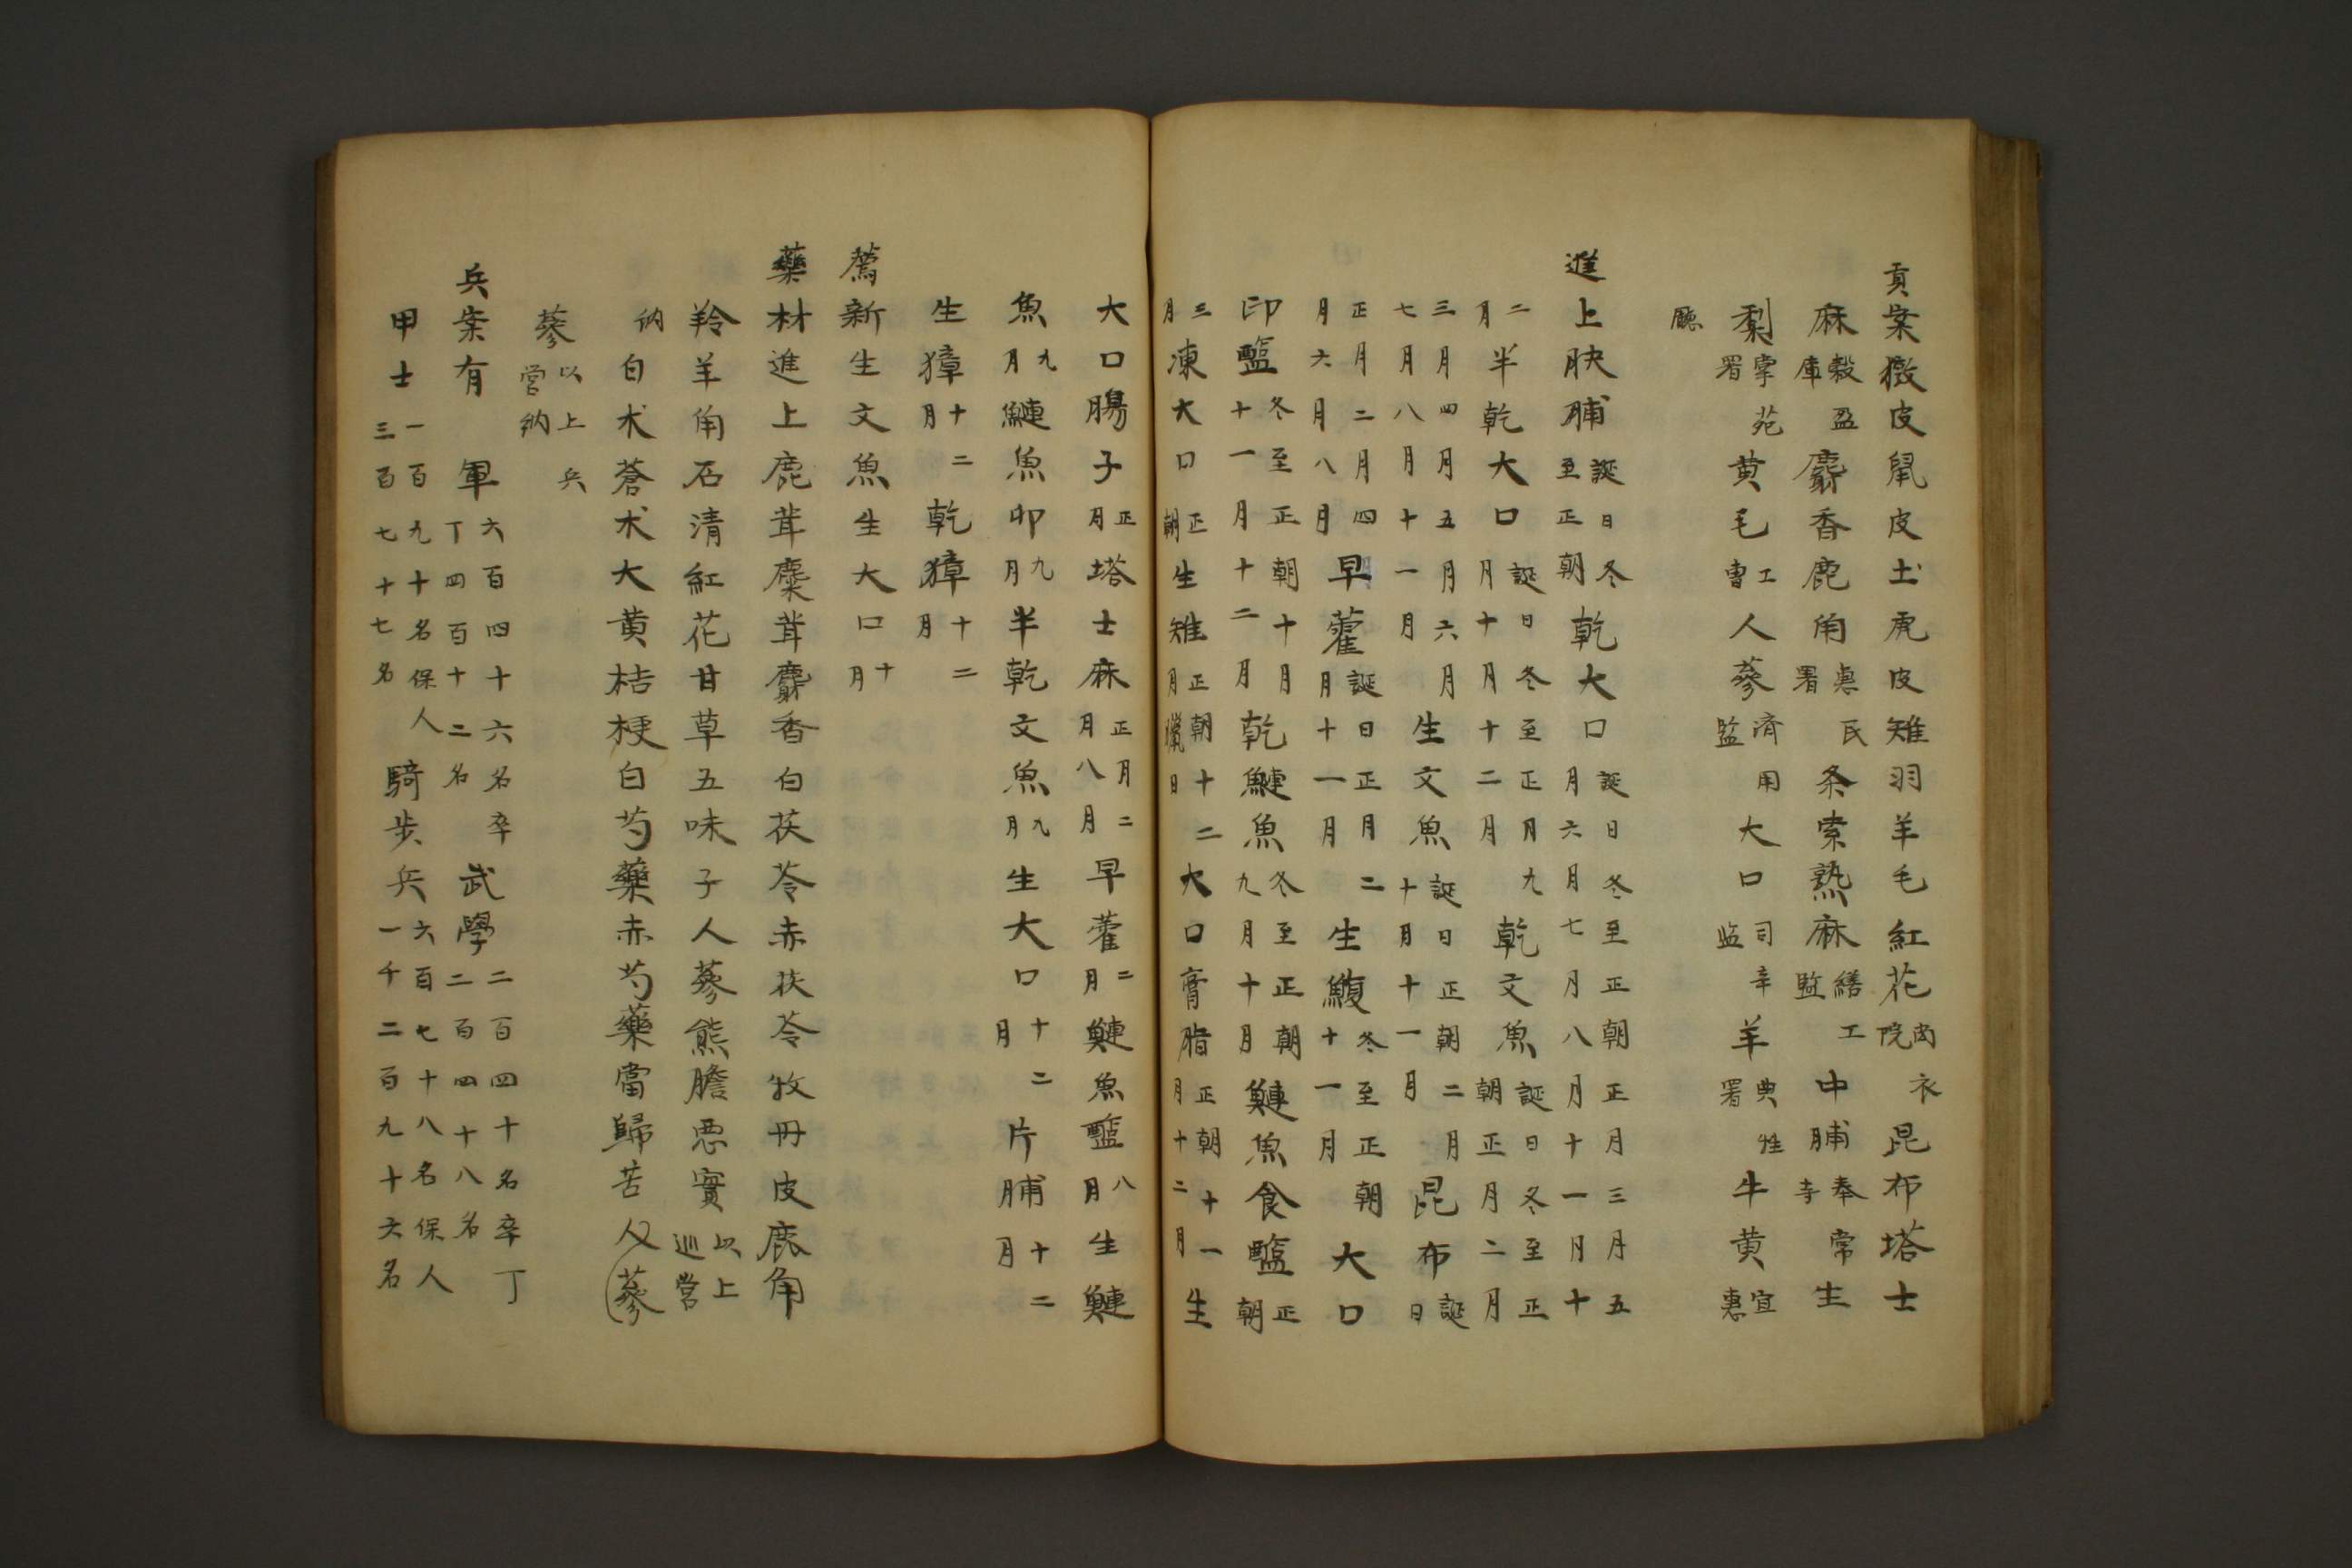 貢案獤皮鼠皮土虎皮雉羽羊毛紅花尚衣院昆布塔士
麻穀盈庫麝香鹿角惠民署条索熟麻繕工監中脯奉常寺生
梨掌苑署黄毛工曹人蔘濟用監大口司宰监羊典牲署牛黄宜惠
廳
進上肤脯誕日冬至正朝乾大口誕日冬至正朝正月三月五月六月七月八月十一月十
二月半乾大口誕日冬至正月九月十月十二月乾文魚誕日冬至正朝正月二月
三月四月五月六月七月八月十一月生文魚誕日正朝二月十月十一月昆布誕日
正月二月四月六月八月早藿誕日正月二月十一月生鰒冬至正朝十一月大口
卵醢冬至正朝十月十一月十二月乾鰱魚冬至正朝九月十月鰱魚食醢正朝
三月凍大口正朝生雉正朝十二月臘日大口膏脂正朝十一月十二月生
大口膓子正月塔士麻正月二月八月早藿二月鰱魚醢八月生鰱
魚九月鰱魚卵九月半乾文魚九月生大口十二月片脯十二月
生獐十二月乾獐十二月
薦新生文魚生大口十月
藥材進上鹿茸麋茸麝香白茯苓赤茯苓牧丹皮鹿角
羚羊角石清紅花甘草五味子人蔘熊膽惡實以上巡營
納白朮蒼朮大黄桔梗白芍藥赤芍藥當歸苦人蔘
蔘以上兵營納
兵案有軍六百四十六名卒丁四百十二名武學二百四十名卒丁二百四十八名
甲士一百九十名保人三百七十七名騎步兵六百七十八名保人一千二百九十六名